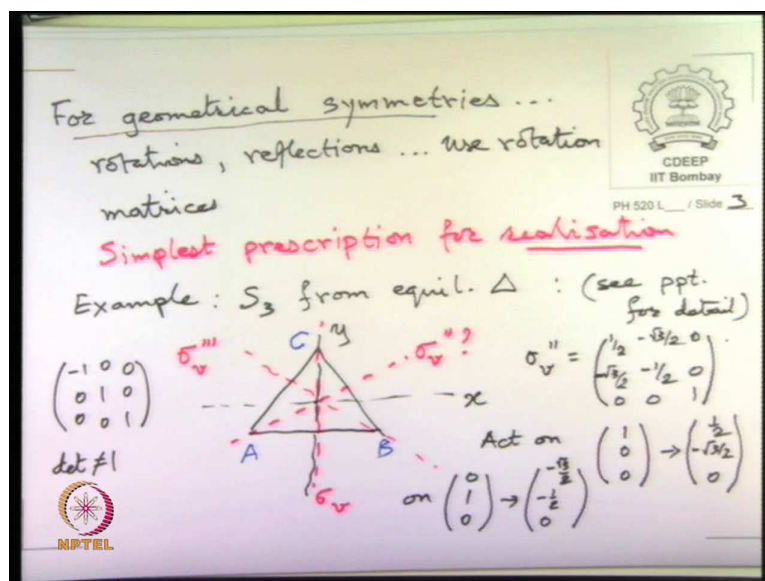 For geometrical symmetries...
rotations, reflections... use rotation
matrices
CDEEP
IIT Bombay
PH 520 L___ / Slide 3
Simplest prescription for realisation
Example: S₃ from equil. Δ : (see ppt.
for detail)
(-1 0 0
0 1 0
0 0 1)
det ≠ 1
σᵥ'''
C
y
σᵥ''?
x
A
B
σᵥ
σᵥ'' = (1/2 -√3/2 0
-√3/2 -1/2 0
0 0 1)
Act on (1 0 0) → (1/2 -√3/2 0)
on (0 1 0) → (-√3/2 -1/2 0)
NPTEL